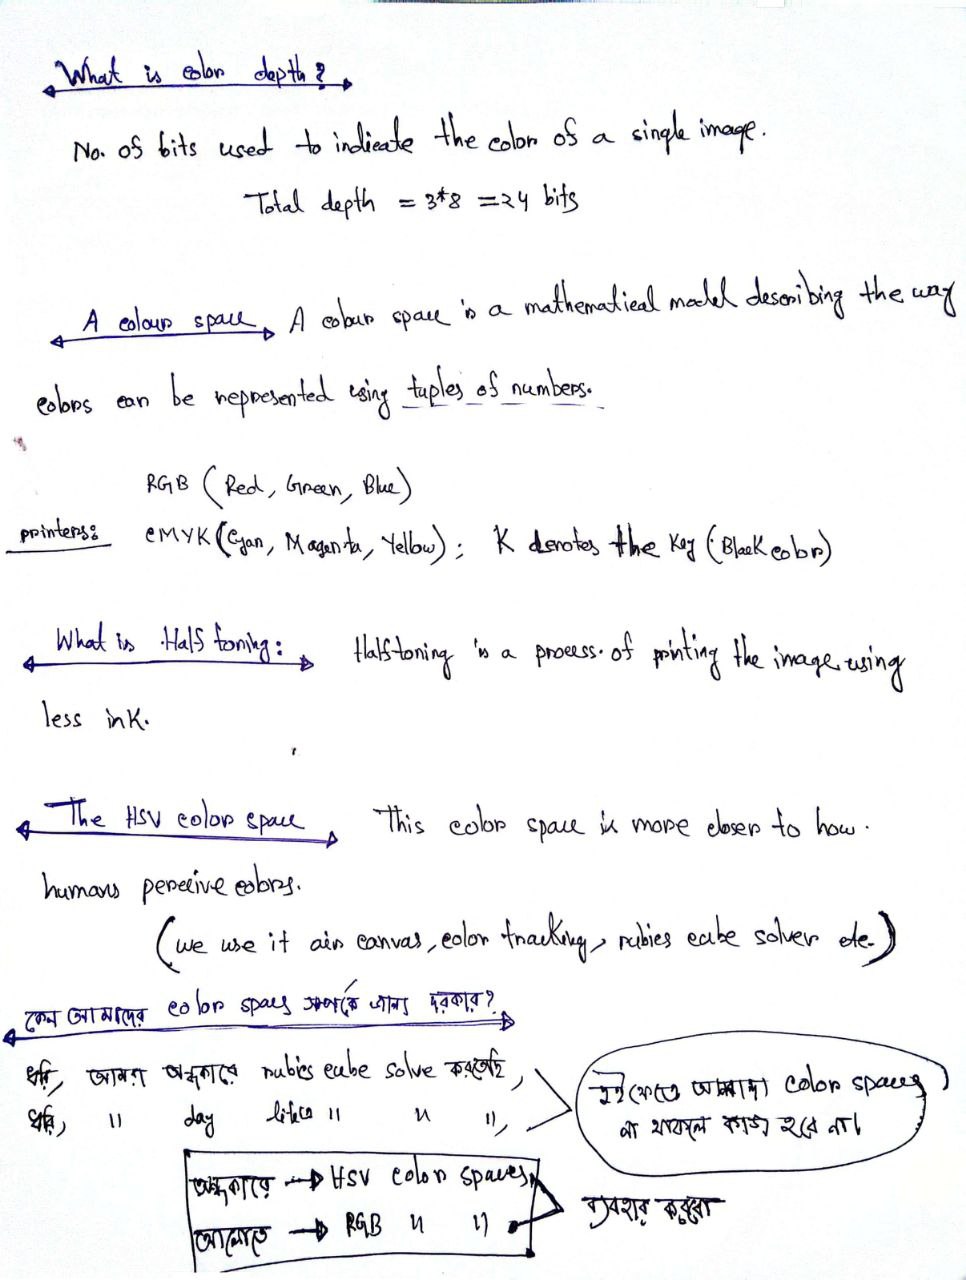 What is color depth?
No. of bits used to indicate the color of a single image.
Total depth = 3*8 = 24 bits
A colour space A colour space is a mathematical model describing the way
colors can be represented using tuples of numbers.
RGB (Red, Green, Blue)
printers: CMYK (Cyan, Magenta, Yellow); K denotes the Key (Black color)
What is Half toning: Halftoning is a process of printing the image using
less ink.
The HSV color space This color space is more closer to how
humans perceive colors.
(we use it air canvas, color tracking, rubies cube solver etc.)
কেন আমাদের color spaces সম্পর্কে জানা দরকার?
ধরি, আমরা অন্ধকারে rubies cube solve করতেছি,
ধরি, " day " " ",
দুই ক্ষেত্রে আলাদা color spaces
না থাকলে কাজ হবে না।
অন্ধকারে → HSV color spaces
আলোতে → RGB " "
ব্যবহার করবো